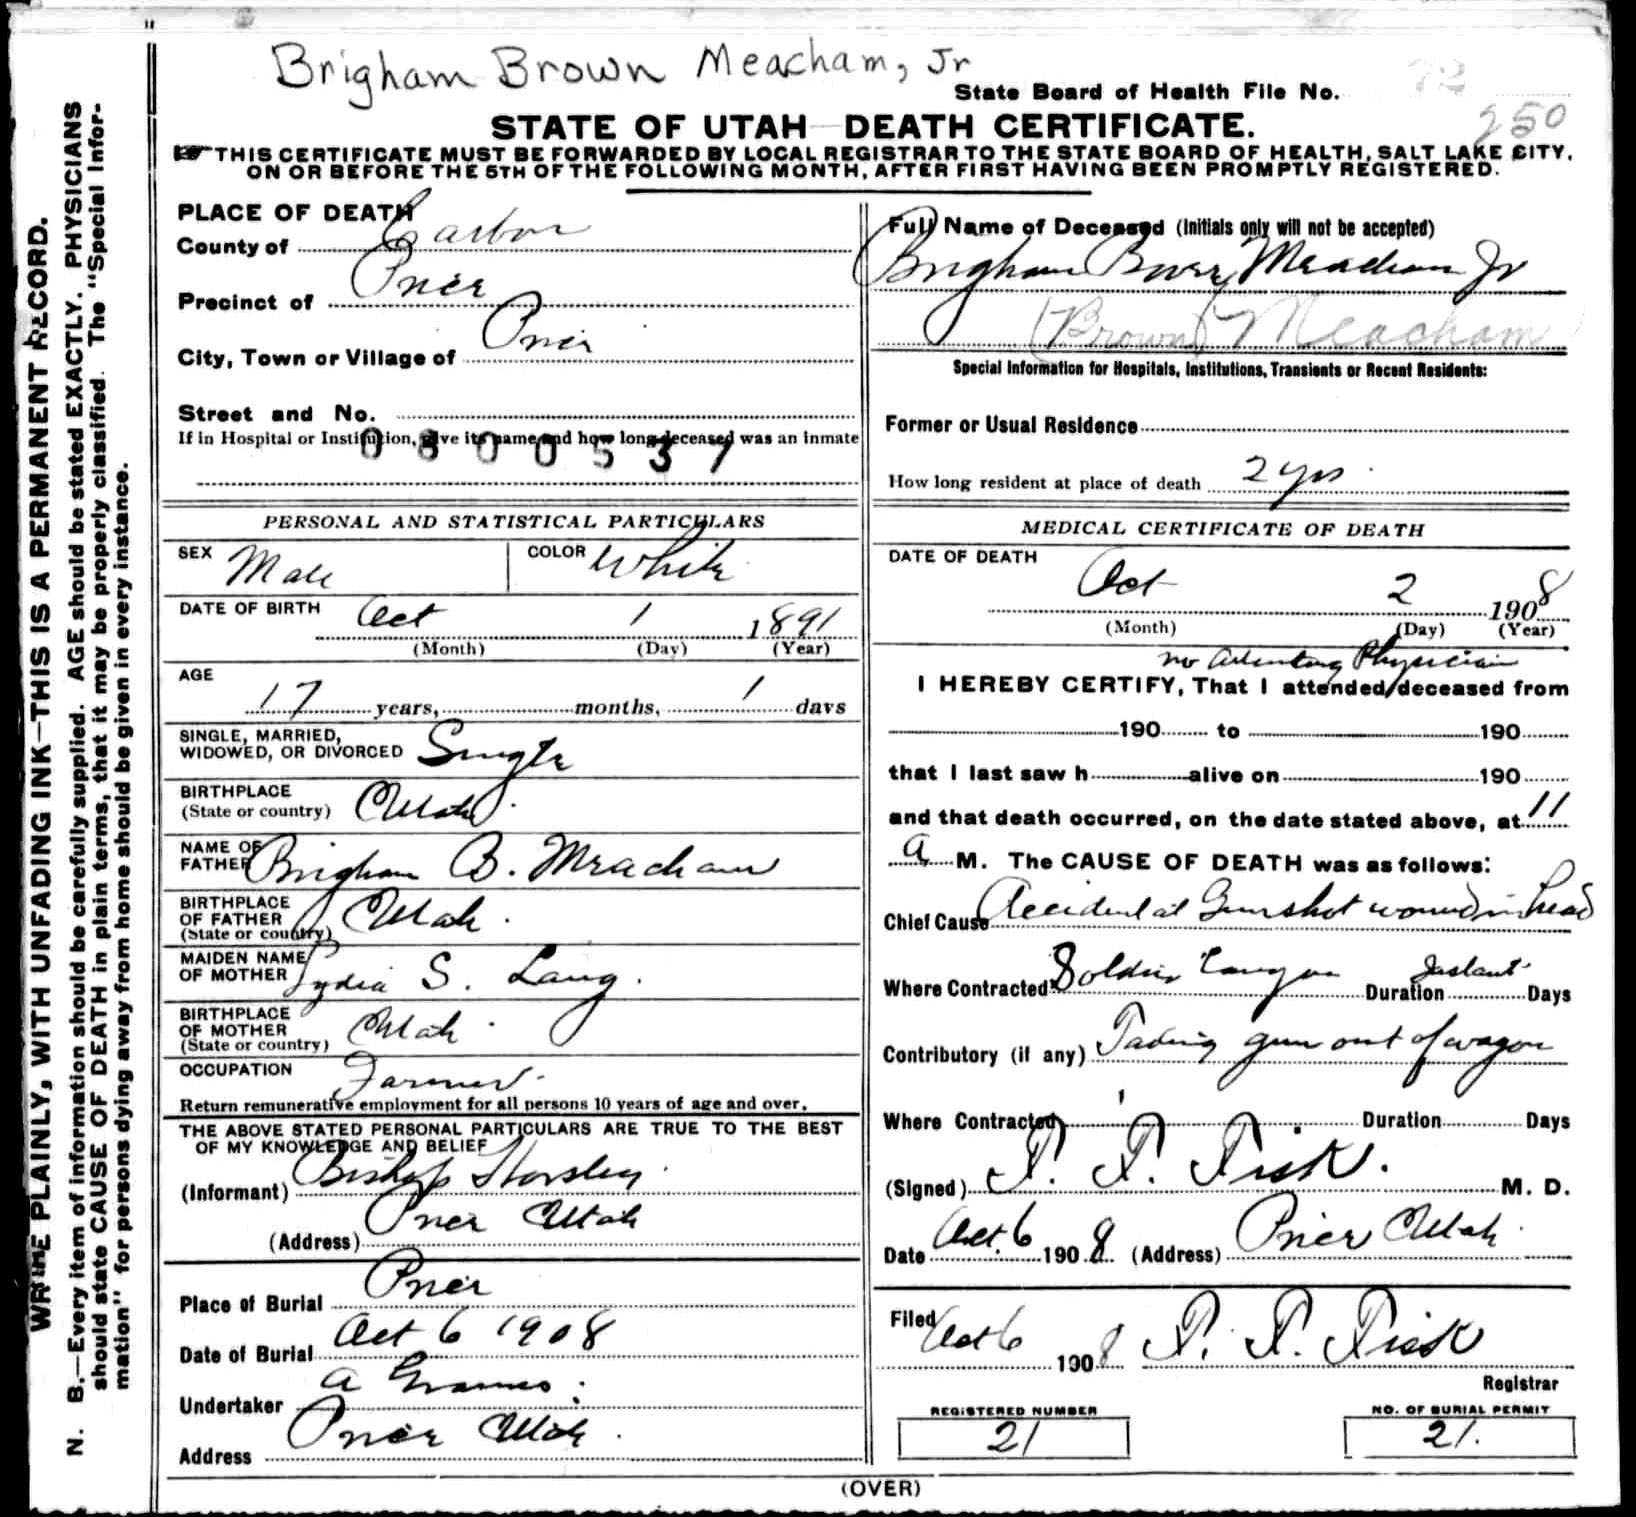 Brigham Brown Meacham, Jr
State Board of Health File No. 72
250
STATE OF UTAH—DEATH CERTIFICATE.
THIS CERTIFICATE MUST BE FORWARDED BY LOCAL REGISTRAR TO THE STATE BOARD OF HEALTH, SALT LAKE CITY,
ON OR BEFORE THE 5TH OF THE FOLLOWING MONTH, AFTER FIRST HAVING BEEN PROMPTLY REGISTERED.
WRITE PLAINLY, WITH UNFADING INK—THIS IS A PERMANENT RECORD.
N. B.—Every item of information should be carefully supplied. AGE should be stated EXACTLY. PHYSICIANS
should state CAUSE OF DEATH in plain terms, that it may be properly classified. The "Special Infor-
mation" for persons dying away from home should be given in every instance.
PLACE OF DEATH
County of Carbon
Precinct of Price
City, Town or Village of Price
Street and No.
If in Hospital or Institution, give its name and how long deceased was an inmate
0800537
PERSONAL AND STATISTICAL PARTICULARS
SEX Male COLOR White
DATE OF BIRTH Oct 1 1891
(Month) (Day) (Year)
AGE
17 years, months, 1 days
SINGLE, MARRIED,
WIDOWED, OR DIVORCED Single
BIRTHPLACE
(State or country) Utah
NAME OF
FATHER Brigham B. Meacham
BIRTHPLACE
OF FATHER
(State or country) Utah.
MAIDEN NAME
OF MOTHER Lydia S. Lang.
BIRTHPLACE
OF MOTHER
(State or country) Utah.
OCCUPATION Farmer.
Return remunerative employment for all persons 10 years of age and over.
THE ABOVE STATED PERSONAL PARTICULARS ARE TRUE TO THE BEST
OF MY KNOWLEDGE AND BELIEF
(Informant) Bishop Horsley
(Address) Price Utah
Place of Burial Price
Date of Burial Oct 6 1908
Undertaker A
Address Price Utah.
Full Name of Deceased (Initials only will not be accepted)
Brigham Meacham Jr
(Brown) Meacham
Special Information for Hospitals, Institutions, Transients or Recent Residents:
Former or Usual Residence
How long resident at place of death 2 yrs
MEDICAL CERTIFICATE OF DEATH
DATE OF DEATH
Oct 2 1908
(Month) (Day) (Year)
no Attenting Physician
I HEREBY CERTIFY, That I attended/deceased from
190 to 190
that I last saw h alive on 190
and that death occurred, on the date stated above, at 11
a M. The CAUSE OF DEATH was as follows:
Chief Cause Accidental Gunshot wound in head
Where Contracted Soldier Canyon Duration Instant Days
Contributory (if any) Taking gun out of wagon
Where Contracted Duration Days
(Signed) F. F. Fisk. M. D.
Date Oct. 6 1908 (Address) Price Utah.
Filed Oct 6 1908 F. F. Fisk
Registrar
REGISTERED NUMBER
21
NO. OF BURIAL PERMIT
21.
(OVER)